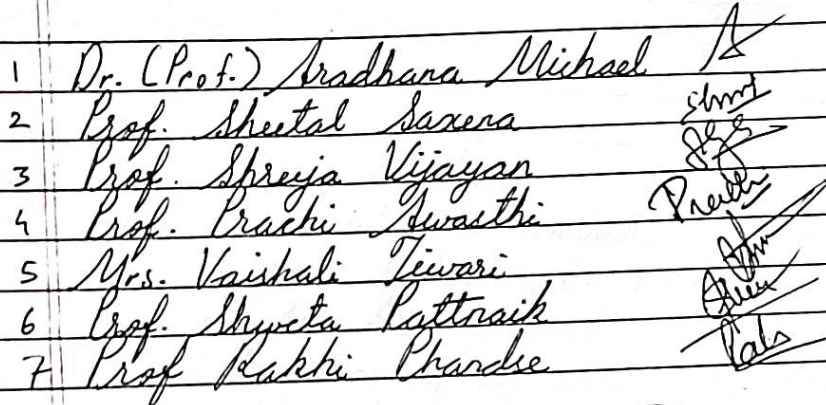 1 Dr. (Prof.) Aradhana Michael
2 Prof. Sheetal Saxena
3 Prof. Shreeja Vijayan
4 Prof. Prachi Awasthi
5 Mrs. Vaishali Tiwari
6 Prof. Shweta Pattnaik
7 Prof Rakhi Phandse